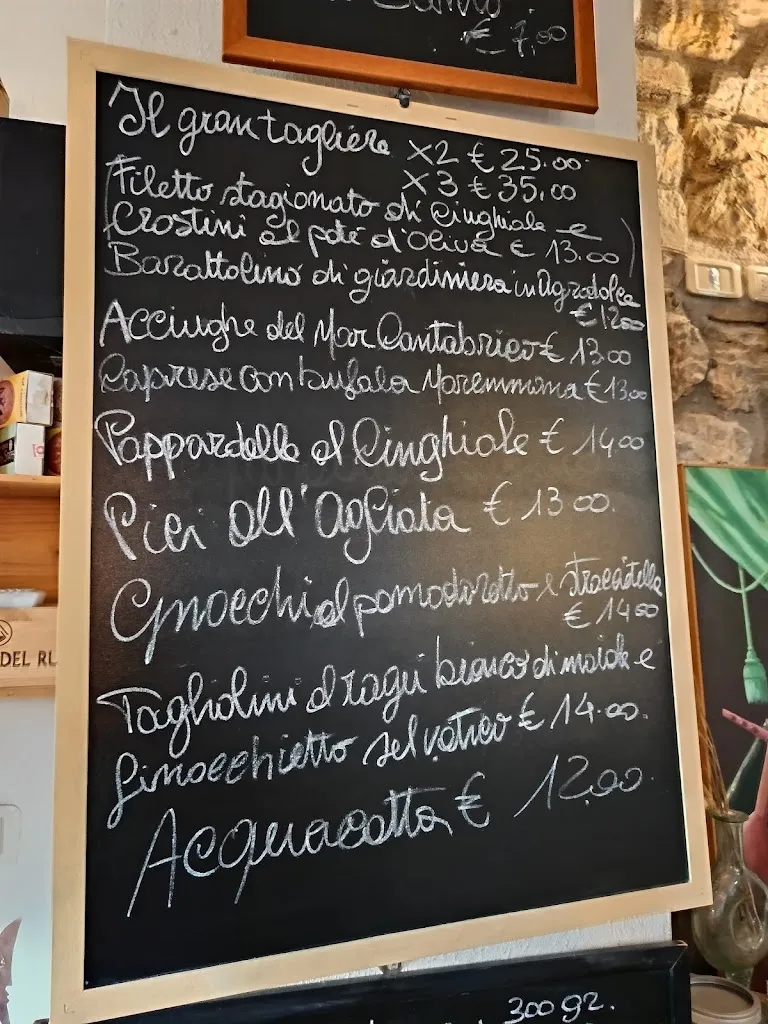 € 7,00
Il gran tagliere x2 € 25.00
x3 € 35,00
Filetto stagionato di Cinghiale e
Crostini al paté d'Oliva € 13.00
Barattolino di giardiniera in Agrodolce
€ 12.00
Acciughe del Mar Cantabrico € 13.00
Caprese con bufala Maremmana € 13.00
Pappardelle al Cinghiale € 14.00
Pici all'Agliata € 13.00.
Gnocchi al pomodoretto e stracciatella
€ 14.00
Tagliolini al ragù bianco di maiale e
finocchietto selvatico € 14.00.
Acquacotta € 12,00
DEL RU
300 gr.